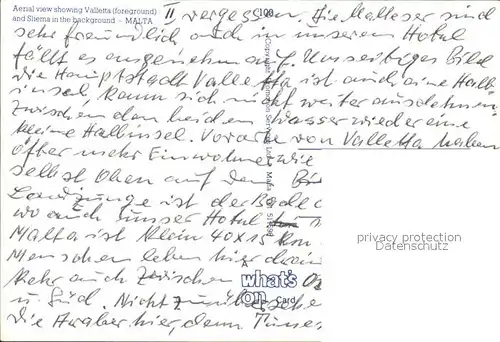 Aerial view showing Valletta (foreground)
and Sliema in the background – MALTA
II vergessen. Die Malteser sind
sehr freundlich, auch in unserem Hotel
fällt es angenehm auf. Umseitiges Bild
die Hauptstadt Valletta ist auch eine Halb-
insel, kann sich nicht weiter ausdehnen
zwischen den beiden Wasser wieder eine
kleine Halbinsel. Vororte von Valletta haben
öfter mehr Einwohner wie
selbst Oben auf dem
Landzunge ist der Bade
wo auch unser Hotel
Malta ist klein 40x15 km
Menschen leben hier
kehr auch zwischen
u. Süd. Nicht zu übersehe
die Araber hier, denn Tunes
100
Copyright Common Services Ltd. Malta
A
what's
on
Card
privacy protection
Datenschutz